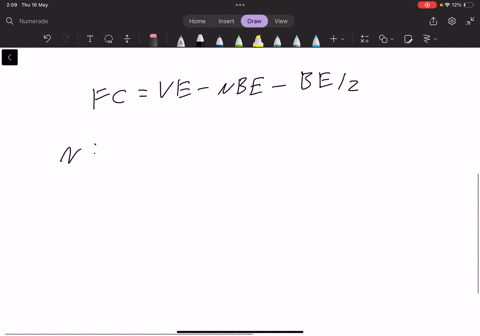 2:09 Thu 16 May
12%
Numerade
Home Insert Draw View
FC = VE - NBE - BE/2
N :